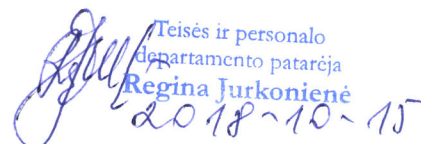 Teisės ir personalo
departamento patarėja
Regina Jurkonienė
2018-10-15